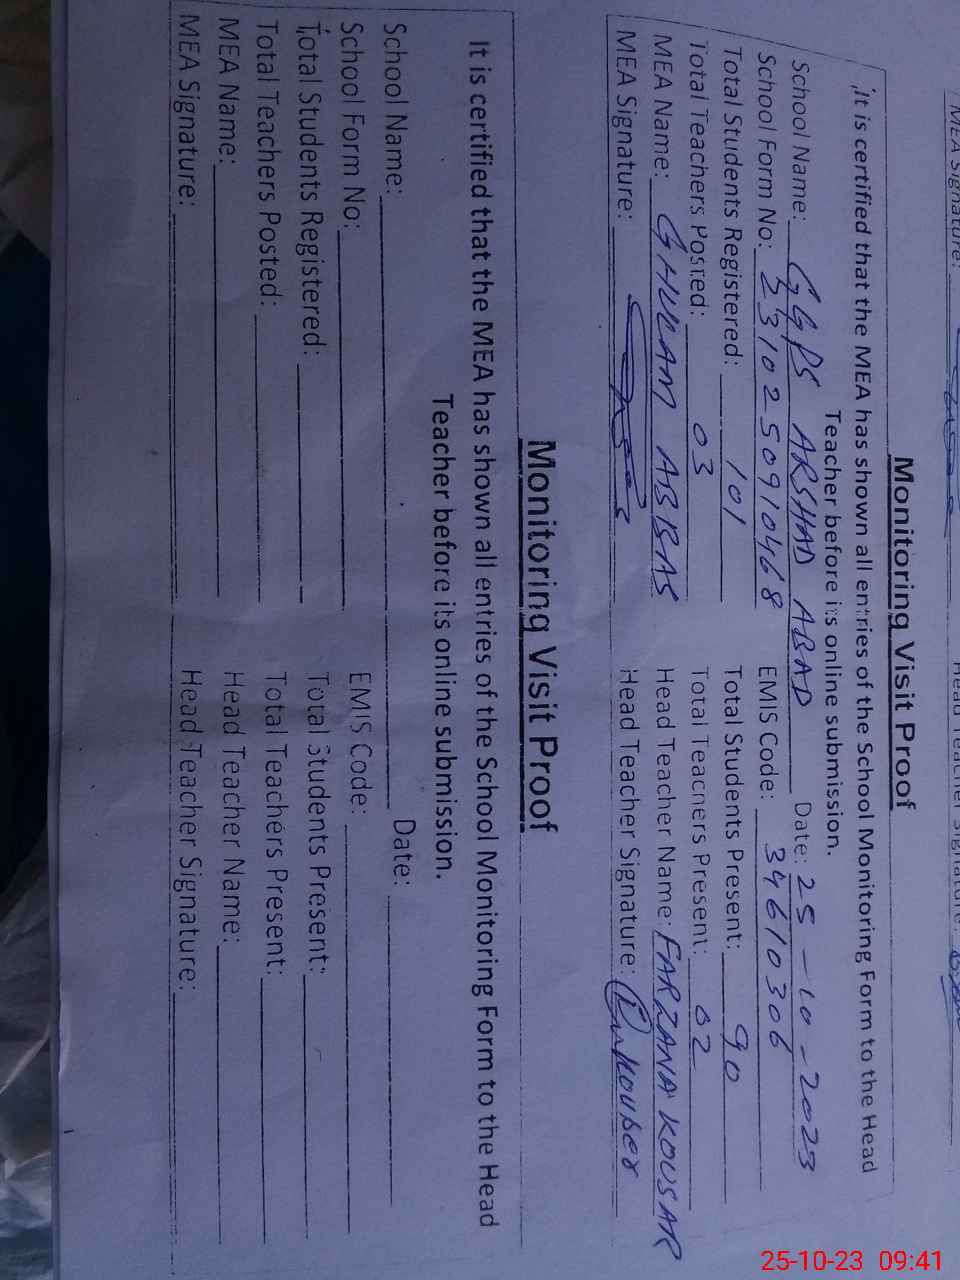 MEA Signature:
Head Teacher Signature:
Monitoring Visit Proof
It is certified that the MEA has shown all entries of the School Monitoring Form to the Head
Teacher before its online submission.
School Name: GGPS ARSHAD ABAD Date: 25-10-2023
School Form No: 23102509910468 EMIS Code: 34610306
Total Students Registered: 101 Total Students Present: 90
Total Teachers Posted: 03 Total Teachers Present: 02
MEA Name: GHULAM ABBAS Head Teacher Name: FARZANA KOUSAR
MEA Signature: Head Teacher Signature:
Monitoring Visit Proof
It is certified that the MEA has shown all entries of the School Monitoring Form to the Head
Teacher before its online submission.
School Name: Date:
School Form No: EMIS Code:
Total Students Registered: Total Students Present:
Total Teachers Posted: Total Teachers Present:
MEA Name: Head Teacher Name:
MEA Signature: Head Teacher Signature:
25-10-23 09:41